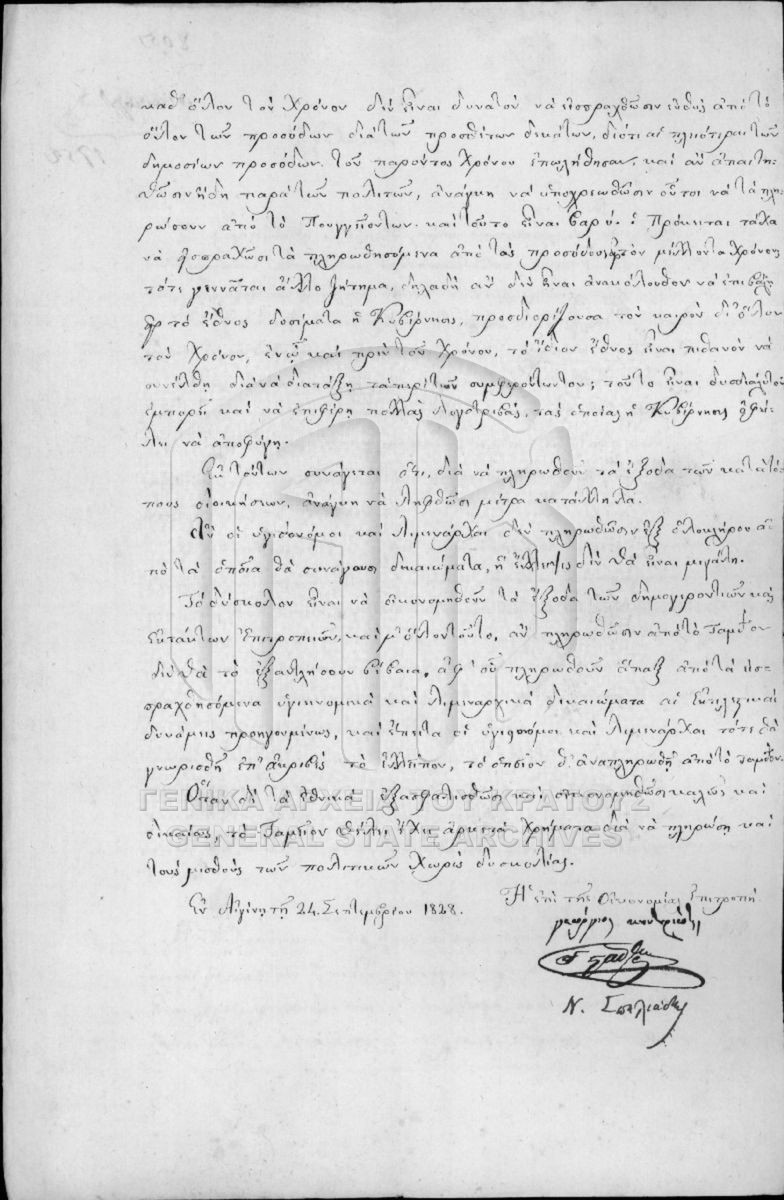 καθ' ὅλον τὸν χρόνον δὲν εἶναι δυνατὸν νὰ εἰσπραχθῶσιν εὐθὺς ἀπὸ τὸ
ὅλον τῶν προσόδων διὰ τῶν προσθέτων δεκάτων, διότι αἱ πλειότεραι τῶν
δημοσίων προσόδων τοῦ παρόντος χρόνου ἐπωλήθησαν, καὶ ἂν ἀπαιτη-
θῶσιν ἤδη παρὰ τῶν πολιτῶν, ἀνάγκη νὰ ὑποχρεωθῶσιν οὗτοι νὰ τὰ πλη-
ρώσουν ἀπὸ τὸ Πουγγίον των· καὶ τοῦτο εἶναι βαρύ. Πρόκειται τάχα
νὰ εἰσπραχθῶσι τὰ πληρωθησόμενα ἀπὸ τὰς προσόδους τὸν μέλλοντα χρόνον;
τότε γεννᾶται ἄλλο ζήτημα, δηλαδὴ ἂν δὲν εἶναι ἀνακόλουθον νὰ ἐπιβάλῃ
εἰς τὸ ἔθνος δοσίματα ἡ Κυβέρνησις, προσδιορίζουσα τὸν καιρὸν δι' ὅλον
τὸν χρόνον, ἐνῷ καὶ πρὶν τοῦ χρόνου, τὸ ἴδιον ἔθνος εἶναι πιθανὸν νὰ
συνέλθῃ διὰ νὰ διατάξῃ τὰ περὶ τῶν συμφερόντων του; τοῦτο εἶναι δυσδιάλυτον
ἐμπορεῖ καὶ νὰ ἐπιφέρῃ πολλὰς λογοτριβάς, τὰς ὁποίας ἡ Κυβέρνησις ὀφεί-
λει νὰ ἀποφύγῃ.
Ἐκ τούτων συνάγεται ὅτι, διὰ νὰ πληρωθοῦν τὰ ἔξοδα τῶν κατὰ τό-
πους διοικήσεων, ἀνάγκη νὰ ληφθῶσι μέτρα κατάλληλα.
Ἂν οἱ ὑγιειονόμοι καὶ Λιμενάρχαι δὲν πληρωθῶσιν ἐξ ὁλοκλήρου ἀ-
πὸ τὰ ὁποῖα θὰ συνάγωσι δικαιώματα, ἡ ἔλλειψις δὲν θὰ εἶναι μεγάλη.
Τὸ δύσκολον εἶναι νὰ οἰκονομηθοῦν τὰ ἔξοδα τῶν δημογεροντιῶν καὶ
Ἐκτάκτων Ἐπιτροπειῶν, καὶ μ' ὅλον τοῦτο, ἂν πληρωθῶσιν ἀπὸ τὸ Ταμεῖον
δὲν θὰ τὸ ἐξαντλήσουν βέβαια, ἀφ' οὗ πληρωθοῦν ἅπαξ ἀπὸ τὰ εἰσ-
πραχθησόμενα ὑγιειονομικὰ καὶ Λιμεναρχικὰ δικαιώματα αἱ Ἐκτελεστικαὶ
δυνάμεις προηγουμένως, καὶ ἔπειτα οἱ ὑγιειονόμοι καὶ Λιμενάρχαι τότε θὰ
γνωρισθῇ ἐπ' ἀκριβὲς τὸ ἐλλεῖπον, τὸ ὁποῖον θ' ἀναπληρωθῇ ἀπὸ τὸ ταμεῖον.
Ὅταν δὲ τὰ ἐθνικὰ ἐξασφαλισθῶσι καὶ οἰκονομηθῶσι καλῶς καὶ
δικαίως, τὸ Ταμεῖον θέλει ἔχει ἀρκετὰ χρήματα διὰ νὰ πληρώσῃ καὶ
τοὺς μισθοὺς τῶν πολιτικῶν χωρὶς δυσκολίας.
Ἐν Αἰγίνῃ τῇ 24. Σεπτεμβρίου 1828.
Ἡ ἐπὶ τῆς Οἰκονομίας Ἐπιτροπή
γεώργιος κουντουριώτης
Ν. Σπηλιάδης
ΓΕΝΙΚΑ ΑΡΧΕΙΑ ΤΟΥ ΚΡΑΤΟΥΣ
GENERAL STATE ARCHIVES